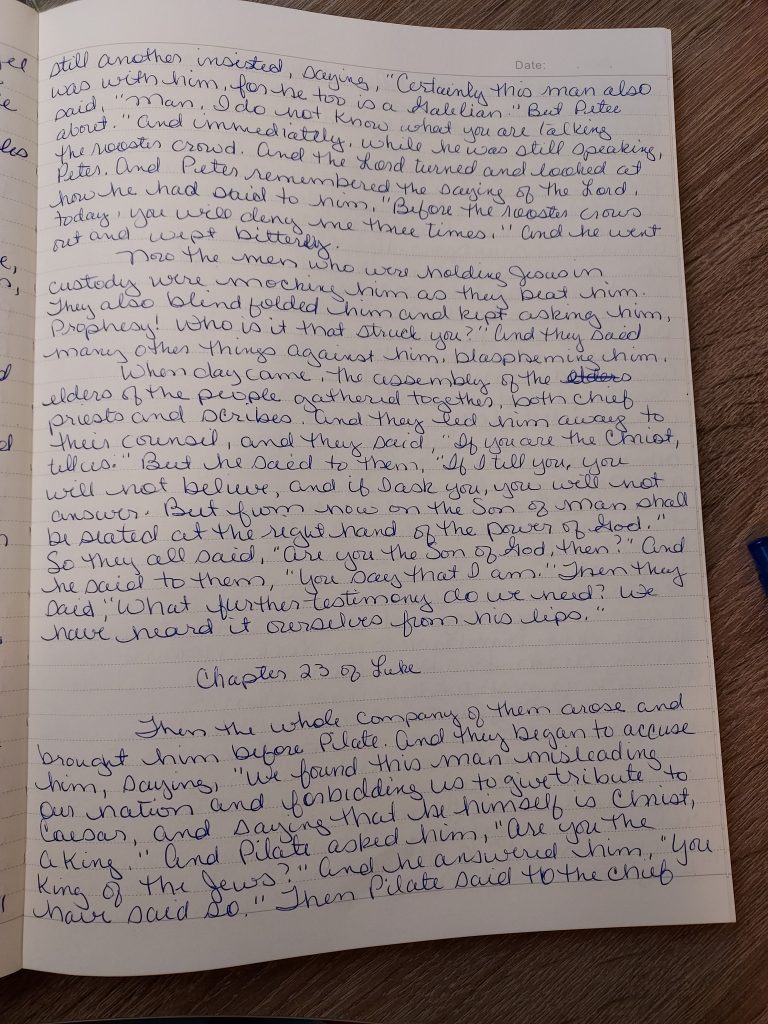 Date:
still another insisted, saying, "Certainly this man also
was with him, for he too is a Galilean." But Peter
said, "Man, I do not know what you are talking
about." And immediately, while he was still speaking,
the rooster crowd. And the Lord turned and looked at
Peter. And Peter remembered the saying of the Lord,
how he had said to him, "Before the rooster crows
today, you will deny me three times." And he went
out and wept bitterly.
Now the men who were holding Jesus in
custody were mocking him as they beat him.
They also blindfolded him and kept asking him,
Prophesy! Who is it that struck you?" And they said
many other things against him, blaspheming him.
When day came, the assembly of the elders
elders of the people gathered together, both chief
priests and scribes. And they led him away to
their counsil, and they said, "If you are the Christ,
tell us." But he said to them, "If I tell you, you
will not believe, and if I ask you, you will not
answer. But from now on the Son of Man shall
be seated at the right hand of the power of God."
So they all said, "Are you the Son of God, then?" And
he said to them, "You say that I am." Then they
said, "What further testimony do we need? We
have heard it ourselves from his lips."
Chapter 23 of Luke
Then the whole company of them arose and
brought him before Pilate. And they began to accuse
him, saying, "We found this man misleading
our nation and forbidding us to give tribute to
Caesar, and saying that he himself is Christ,
a King." And Pilate asked him, "Are you the
King of the Jews?" And he answered him, "You
have said so." Then Pilate said to the chief